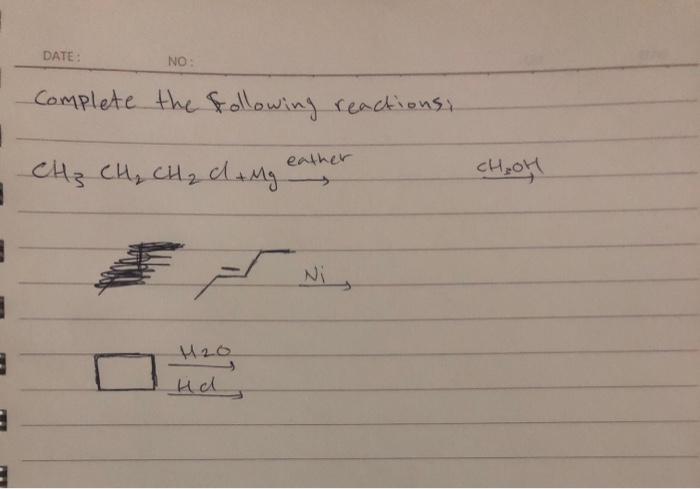 DATE: NO:
Complete the following reactions;
CH3 CH2 CH2 Cl + Mg eather → CH3OH →
Ni →
H2O →
HCl →